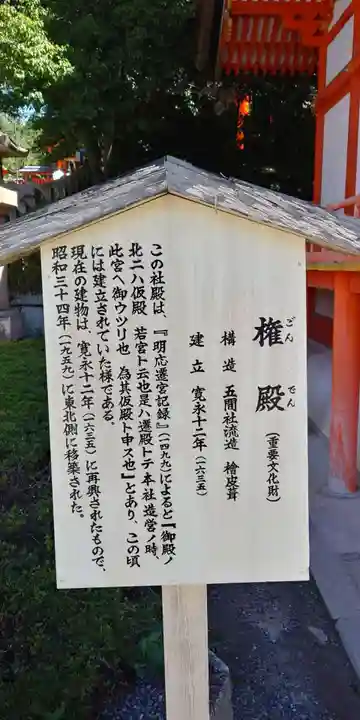 権殿(重要文化財)
ごんでん
構造 五間社流造 檜皮葺
建立 寛永十二年(一六三五)
この社殿は、『明応遷宮記録』(一四九九)によると『御殿ノ
北ニハ仮殿 若宮ト云也是ハ遷殿トテ本社造営ノ時、
此宮ヘ御ウツリ也 為其仮殿ト申ス也』とあり、この頃
には建立されていた様である。
現在の建物は、寛永十二年(一六三五)に再興されたもので、
昭和三十四年(一九五九)に東北側に移築された。